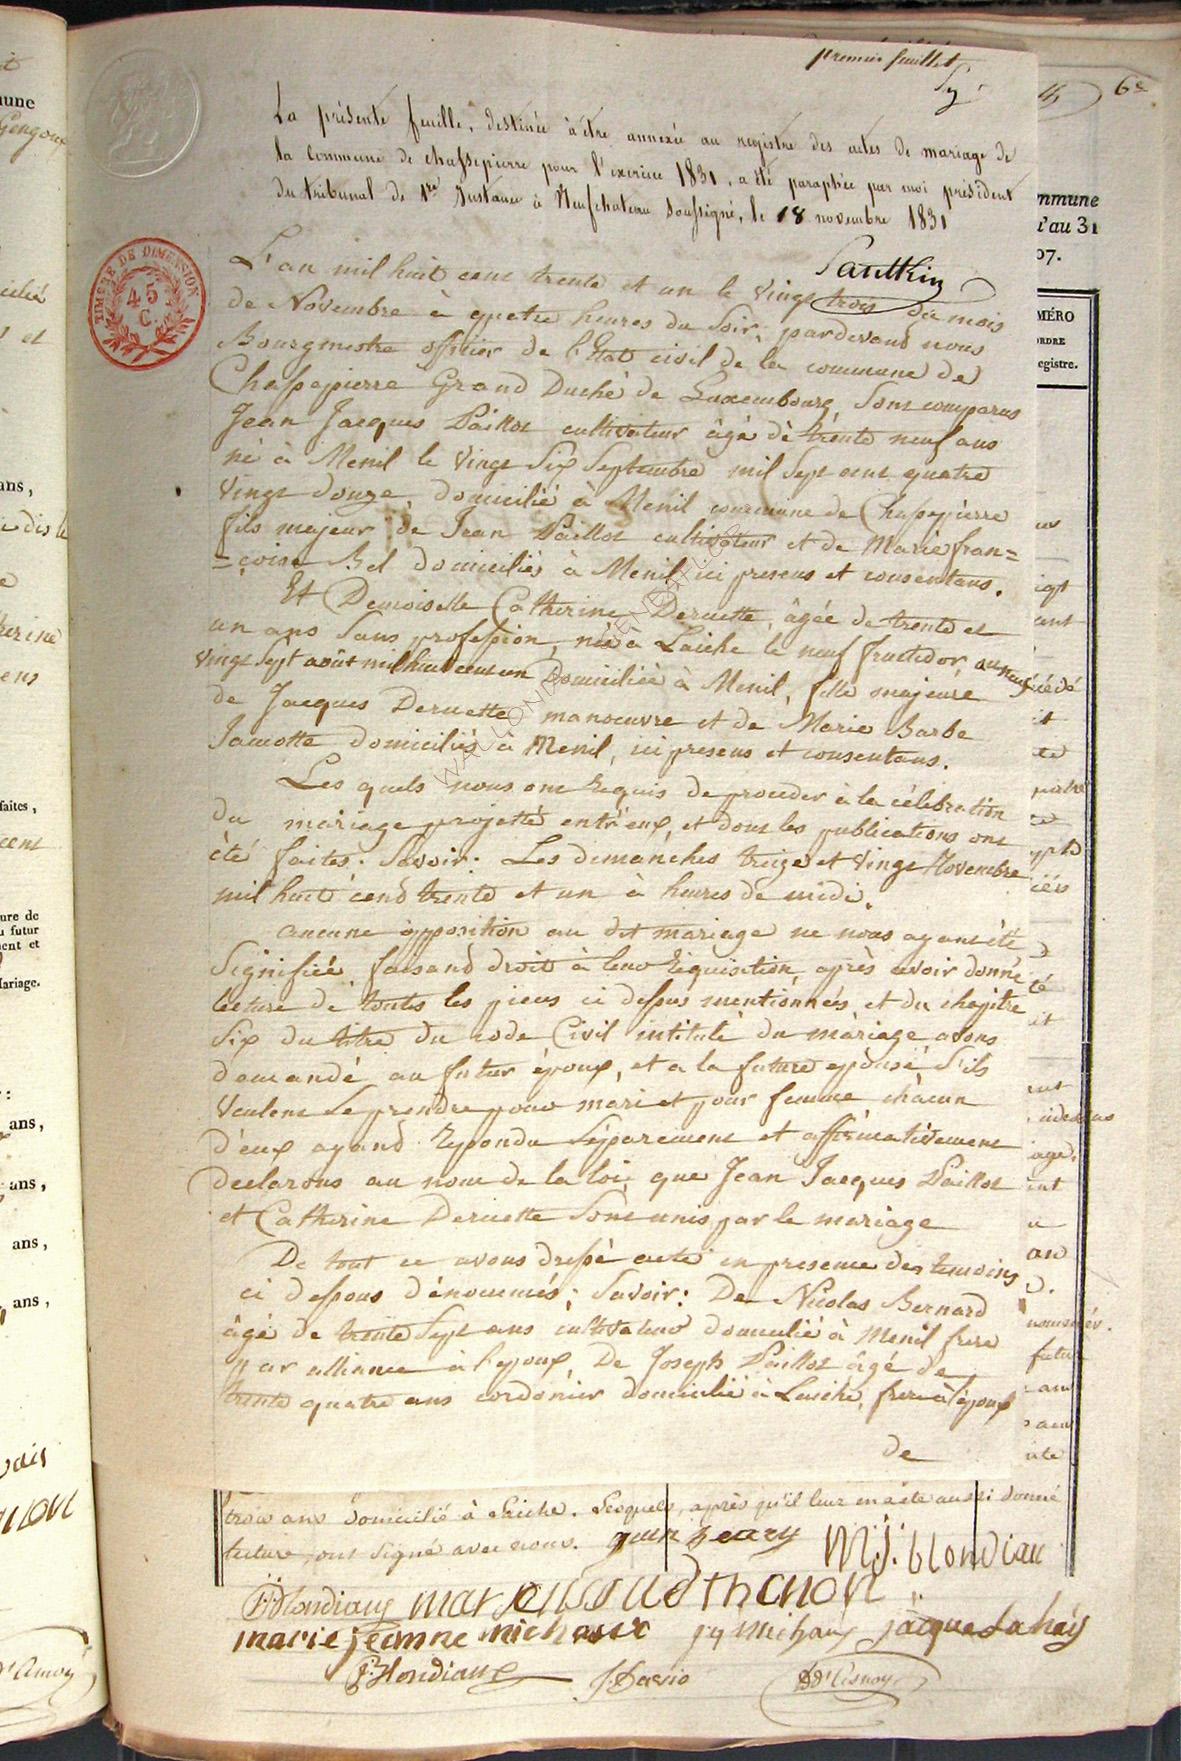 premier feuillet
La présente feuille, destinée à être annexée au registre des actes de mariage de
la commune de chassepierre pour l'exercice 1831, a été paraphée par moi président
du tribunal de 1re Instance à Neufchateau soussigné, le 18 novembre 1831
TIMBRE DE DIMENSION
45
C.
L'an mil huit cent trente et un le vingt trois du mois
de Novembre à quatre heures du Soir, pardevant nous
Bourgmestre officier de l'Etat civil de la commune de
Chassepierre Grand Duché de Luxembourg, Sont comparus
Jean Jacques Paillot cultivateur âgé de trente neuf ans
né à Menil le vingt Six Septembre mil Sept cent quatre
vingt douze, domicilié à Menil commune de Chassepierre
fils majeur de Jean Paillot cultivateur et de Marie fran=
=çoise Bel domiciliés à Menil ici presens et consentans.
Et Demoiselle Catherine Deruette, âgée de trente et
un ans Sans profession, née à Laiche le neuf fructidor an neuf
vingt Sept août mil huit cent un Domiciliée à Menil, fille majeure
de Jacques Deruette manoeuvre et de Marie Barbe
Jacotte domiciliés à Menil, ici presens et consentans.
Les quels nous ont requis de proceder à la célébration
du mariage projetté entr'eux, et dont les publications ont
été faites. Savoir. Les dimanches treize et vingt Novembre
mil huit cent trente et un à heures de midi.
aucune opposition au dit mariage ne nous ayant été
Signifiée, faisant droit à leur réquisition, après avoir donné
lecture de toutes les pieces ci dessus mentionnées et du chapitre
Six du titre du code Civil intitulé du mariage avons
demandé au futur époux, et a la future epouse S'ils
veulent Se prendre pour mari et pour femme chacun
d'eux ayant repondu Séparement et affirmativement
declarons au nom de la loi que Jean Jacques Paillot
et Catherine Deruette Sont unis par le mariage
De tout ce avons dressé acte en presence des temoins
ci dessous dénommés; Savoir: De Nicolas Bernard
âgé de trente Sept ans cultivateur domicilié à Menil frere
par alliance à l'epoux, De Joseph Paillot âgé de
trente quatre ans cordonnier domicilié à Laiche, frere à l'époux
de
trois ans domicilié à Laiche. Lesquels, après qu'il leur en a été aussi donné
lecture, ont signé avec nous.
M.J. blondiau
marie jeanne michaux
mmune
u'au 31
07.
MÉRO
ORDRE
egistre.
WALLONIE